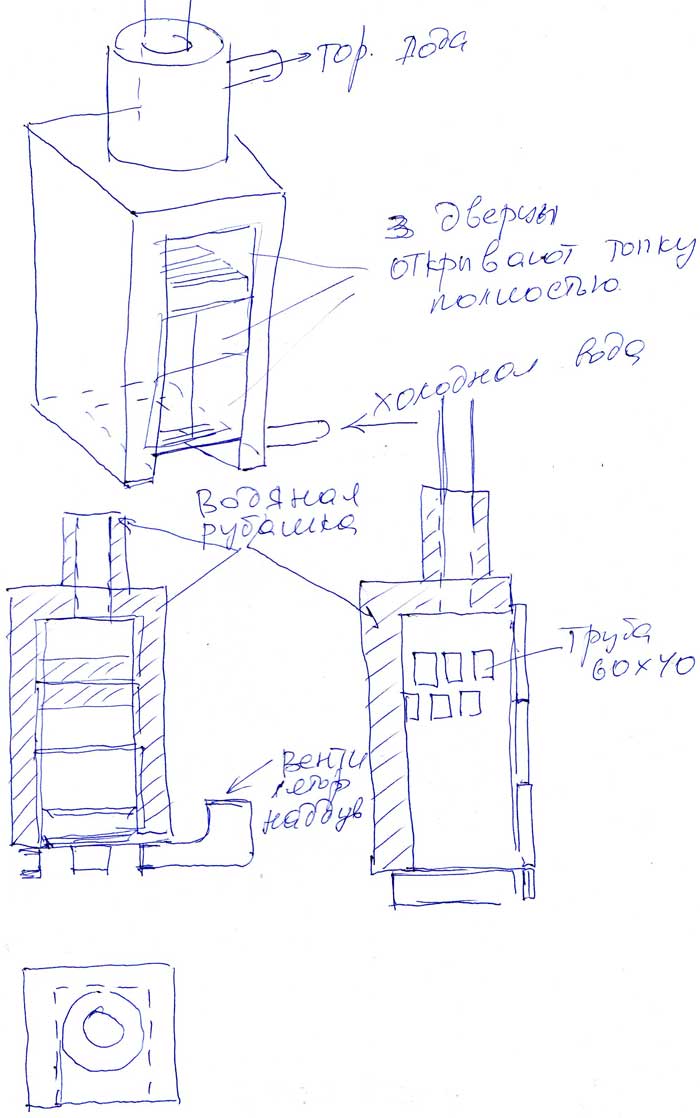 гор. вода
3 дверцы
открывают топку
полностью
холодная вода
Водяная
рубашка
Труба
60×40
Венти
лятор
наддув